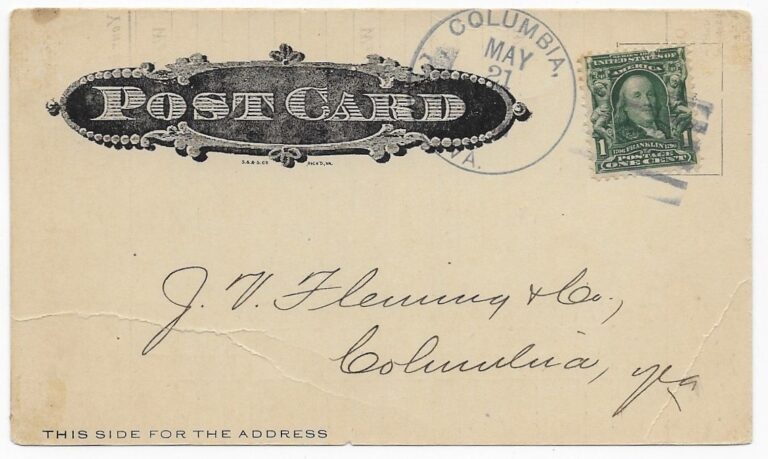 POST CARD
S. & S. CO. RICH'D, VA.
COLUMBIA,
MAY
21
VA.
SERIES OF 1902
UNITED STATES OF
AMERICA
1 1706 FRANKLIN 1790 1
POSTAGE
ONE CENT
J. V. Fleming & Co.,
Columbia, Va
THIS SIDE FOR THE ADDRESS